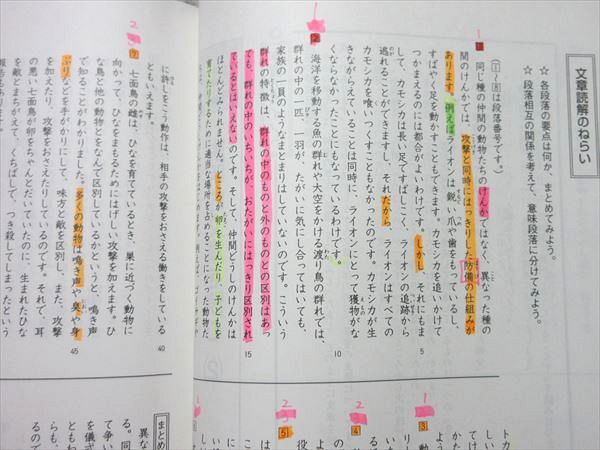 文章読解のねらい
☆各段落の要点は何か、まとめてみよう。
☆段落相互の関係を考えて、意味段落に分けてみよう。
（1～8は段落番号です。）
1 同じ種の仲間の動物たちのけんかではなく、異なった種の
間のけんかでは、攻撃と同時にはっきりした防備の仕組みが
あります。例えばライオンは鋭い爪や歯をもっているし、
すばやく足を動かすこともできます。カモシカを追いかけて
つかまえるのには都合がよいわけです。しかし、それにもま
して、カモシカは長い足ですばしこく、ライオンの追跡から
逃れることができますし、それだから、ライオンはすべての
カモシカを喰いつくすこともなかったのです。カモシカが生
きながらえていることは同時に、ライオンにとって獲物がな
くならなかったことにもなっているわけです。
2 海洋を移動する魚の群れや大空をかける渡り鳥の群れでは、
群れの中の一匹、一羽が、たがいに気にし合ってはいても、
家族の一員のようなまとまりはしていないのです。こういう
群れの特徴は、群れの中のものと外のものとの区別はあっ
ても、群れの中のいちいちが、おたがいにはっきり区別され
ているとはいえないのです。そして、仲間どうしのけんかは
ほとんどみられません。ところが卵を生んだり、子どもを
育てたりするために適当な場所を占めることになった動物た
5
10
15
に許しをこう動作は、相手の攻撃をおさえる働きをしている
ともいえます。
7 七面鳥の雌は、ひなを育てているとき、巣に近づく動物に
向かって、ひなをまもるためにはげしい攻撃を加えます。ひ
な鳥と他の動物とをなんで区別しているかというと、鳴き声
で知ることがわかりました。多くの動物は鳴き声や臭や身
ぶりなどを手がかりにして、味方と敵を区別し、また、攻撃
を加えたり、攻撃をおさえたりしているのです。それで、耳
の悪い七面鳥が卵をちゃんとだいていたのに、生まれたひな
を敵とまちがえて、くちばしで、つき殺してしまったという
40
45
3
4
5
まとめ